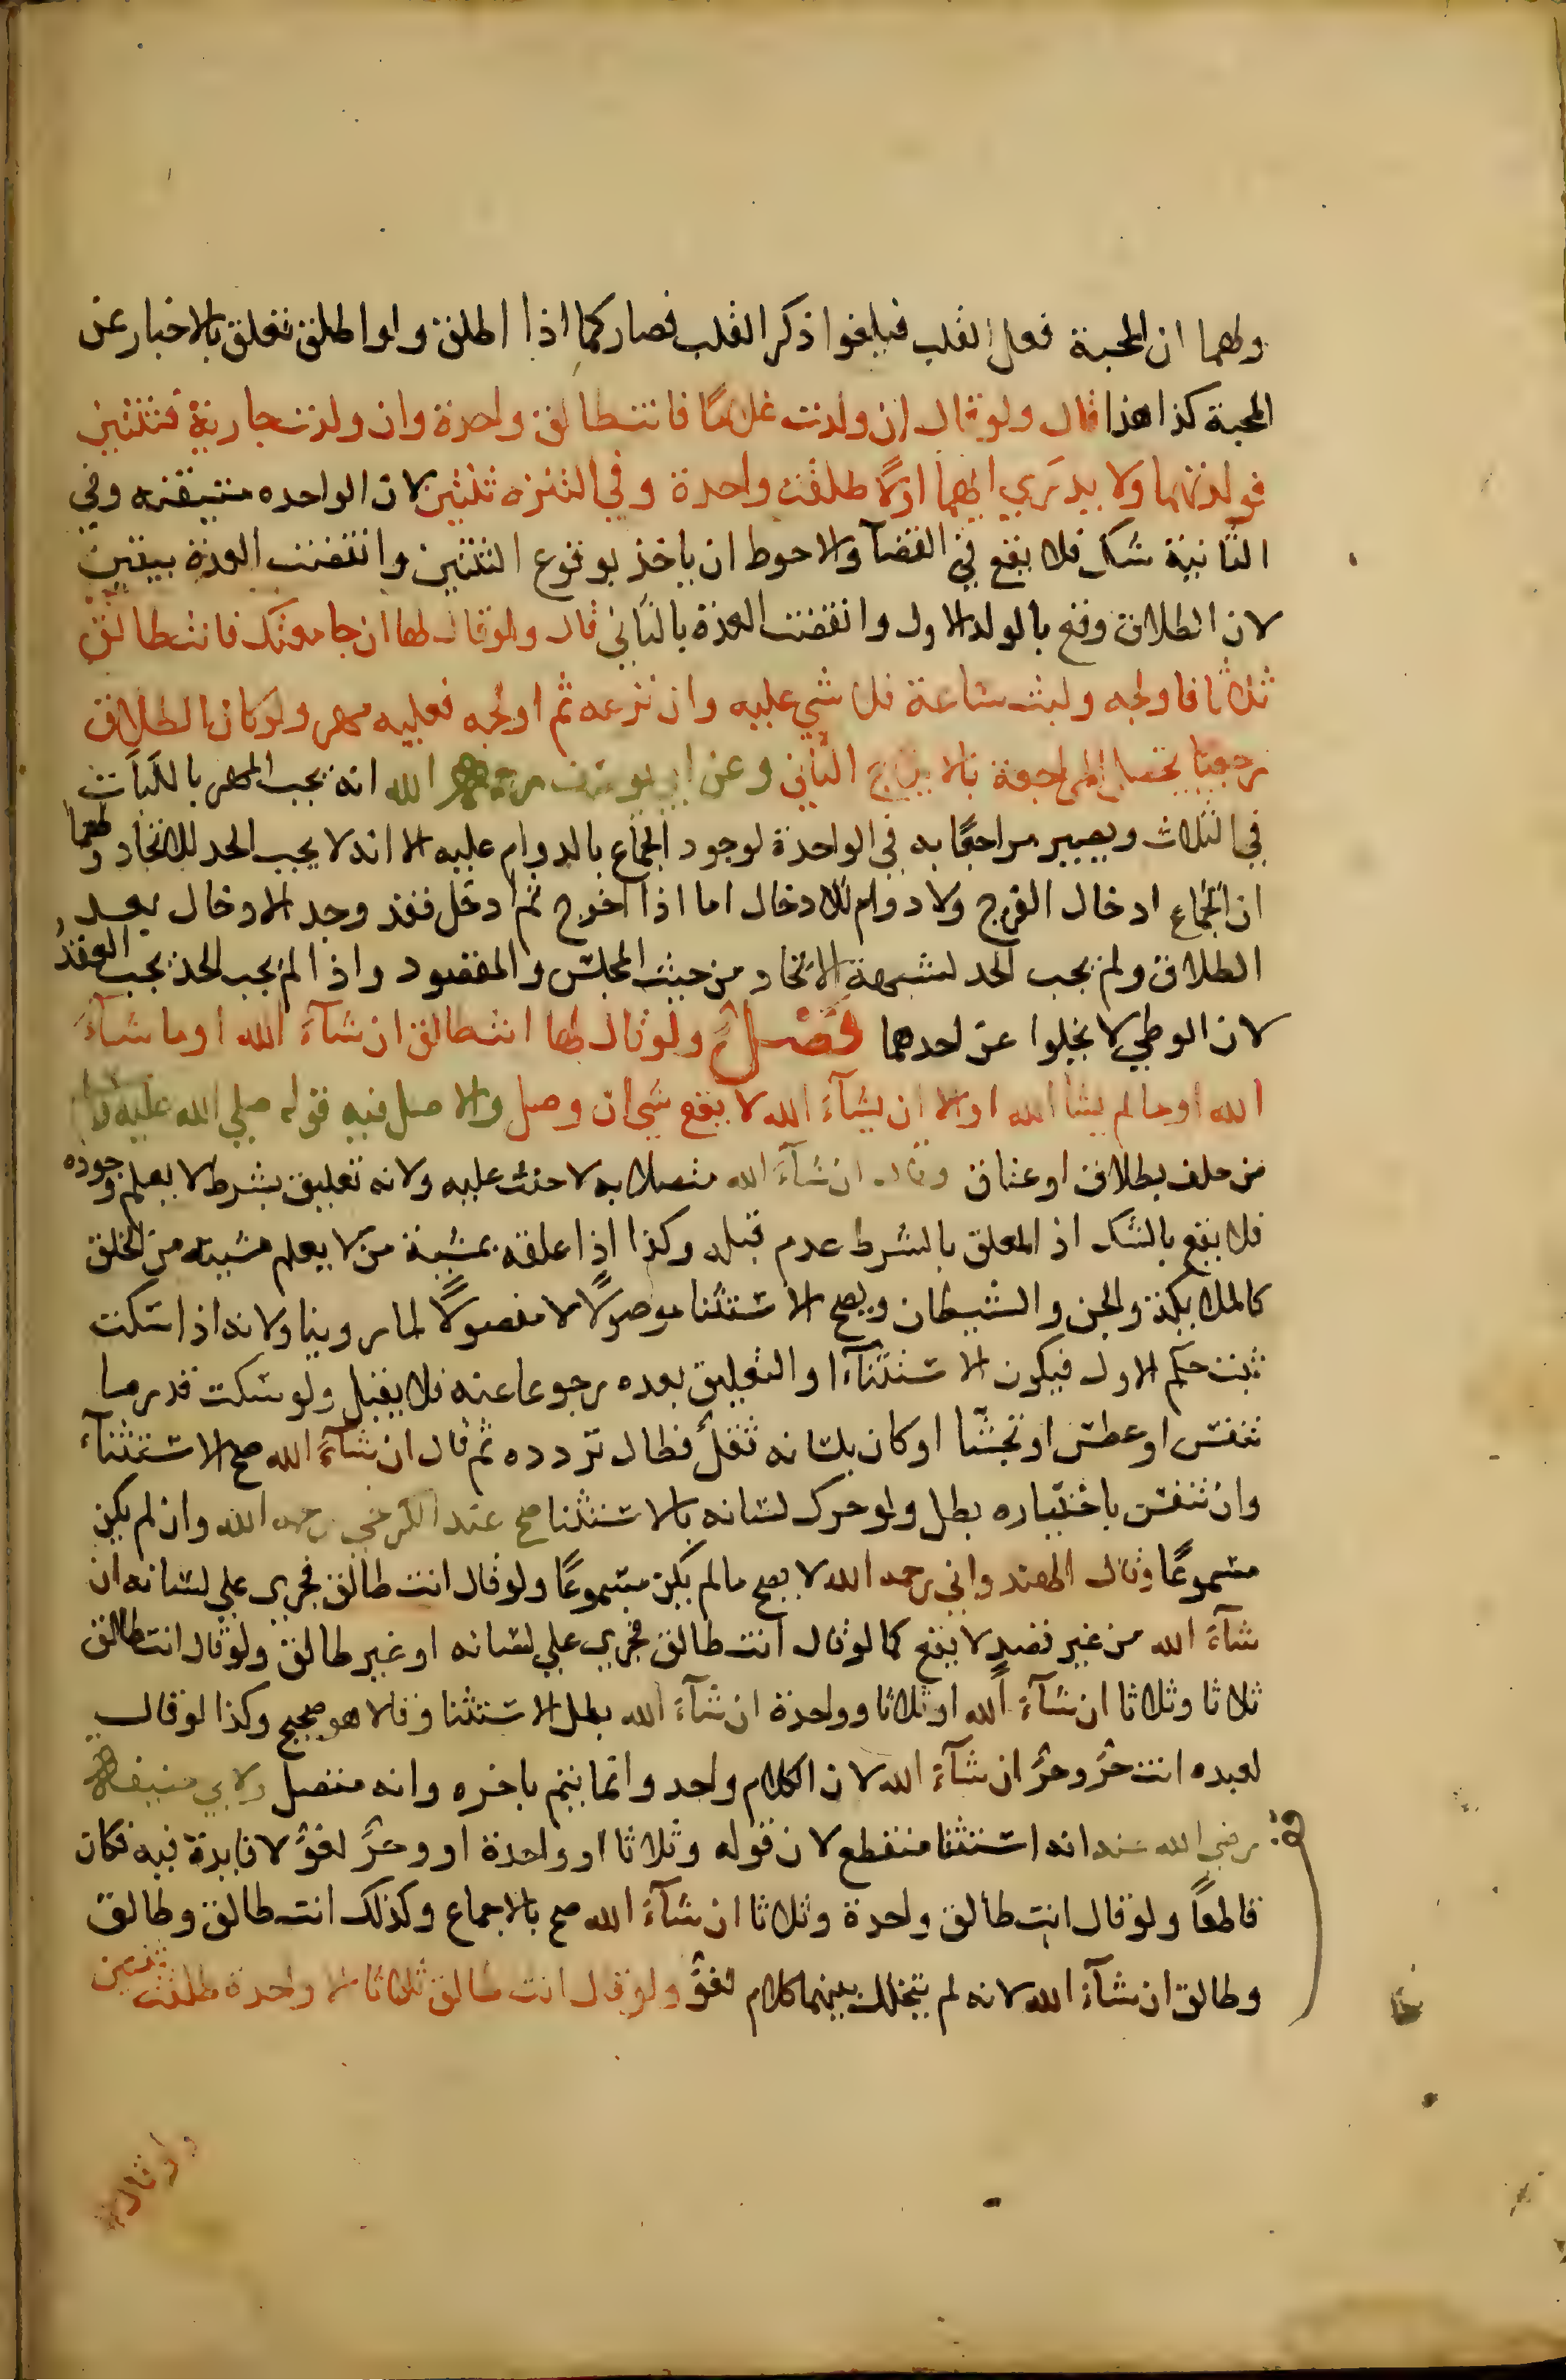 ولهما ان المحبة فعل القلب فيلغوا ذكر القلب فصار كما اذا اطلق ولو اطلق تعلق بالاخبار عن
المحبة كذا هذا قال ولو قال ان ولدت غلامًا فانت طالق واحدة وان ولدت جارية فثنتين
فولدتهما ولا يدري ايهما اولًا طلقت واحدة وفي التنزه ثنتين لان الواحده متيقنه وفي
الثانية شك فلا يقع في القضآ والاحوط ان ياخذ بوقوع الثنتين وانقضت العدة بيقين
لان الطلاق وقع بالولد الاول وانقضت العدة بالثاني قال ولو قال لها ان جامعتك فانت طالق
ثلاثا فاولجه ولبث ساعة فلا شي عليه وان نزعه ثم اولجه فعليه مهر ولو كان الطلاق
رجعيا يحصل المراجعة بالايلاج الثاني وعن ابي يوسف رحمه الله انه يجب المهر باللباث
في الثلاث ويصير مراجعًا به في الواحدة لوجود الجماع بالدوام عليه الا انه لا يجب الحد للاتحاد ولهما
ان الجماع ادخال الفرج ولا دوام للادخال اما اذا اخرج ثم ادخل فقد وجد الادخال بعد
الطلاق ولم يجب الحد لشبهة الاتحاد من حيث المجلس والمقصود واذا لم يجب الحد يجب العقد
لان الوطي لا يخلوا عن احدهما فصل ولو قال لها انت طالق ان شآء الله او ما شآء
الله او ما لم يشا الله او الا ان يشآء الله لا يقع شي ان وصل والاصل فيه قوله صلي الله عليه وسلم
من حلف بطلاق او عتاق وقال ان شآء الله متصلا به لا حنث عليه ولانه تعليق بشرط لا يعلم وجوده
فلا يقع بالشك اذ المعلق بالشرط عدم قبله وكذا اذا علقه بمشية من لا يعلم مشيته من الخلق
كالملايكة والجن والشيطان ويصح الاستثنا موصولًا لا مفصولًا لما روينا ولانه اذا سكت
ثبت حكم الاول فيكون الاستثنآء او التعليق بعده رجوعا عنه فلا يقبل ولو سكت قدر ما
تنفس او عطس او تجشا او كان بلسانه ثقل فطال تردده ثم قال ان شآء الله صح الاستثنآء
وان تنفس باختياره بطل ولو حرك لسانه بالاستثنا صح عند الكرخي رحمه الله وان لم يكن
مسموعًا وقال الهندواني رحمه الله لا يصح ما لم يكن مسموعًا ولو قال انت طالق فجري علي لسانه ان
شآء الله من غير قصد لا يقع كما لو قال انت طالق فجري علي لسانه او غير طالق ولو قال انت طالق
ثلاثا وثلاثا ان شآء الله او ثلاثا وواحدة ان شآء الله بطل الاستثنا وقالا هو صحيح وكذا لو قال
لعبده انت حرٌ وحرٌ ان شآء الله لان الكلام واحد وانما يتم باخره وانه متصل ولابي حنيفة
رضي الله عنه انه استثنا منقطع لان قوله وثلاثا او واحدة او وحرٌ لغوٌ لا فايدة فيه فكان
قاطعاً ولو قال انت طالق واحدة وثلاثا ان شآء الله صح بالاجماع وكذلك انت طالق وطالق
وطالق ان شآء الله لانه لم يتخلل بينهما كلام لغوٌ ولو قال انت طالق ثلاثا الا واحدة طلقت ثنتين
ولو قال